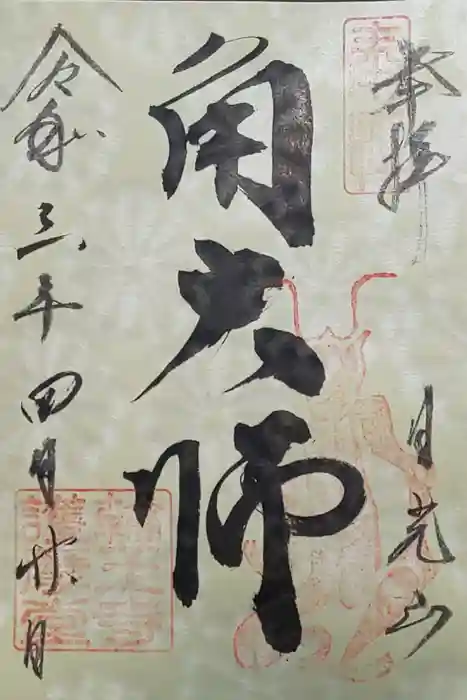 奉拝
日光山
角大師
令和三年四月廿日